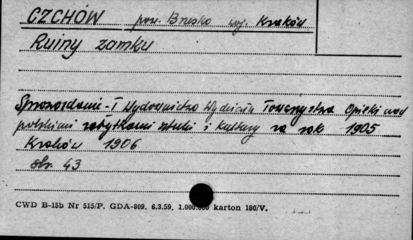 CZCHÓW pow. Brzesko woj. Kraków
Ruiny zamku
Sprawozdanie - I Wydawnictwo Wydziału Towarzystwa Opieki nad
polskimi zabytkami sztuki i kultury za rok 1905
Kraków 1906
str. 43
CWD B-15b Nr 515/P. GDA-809. 6.3.59, 1.000.000 karton 180/V.